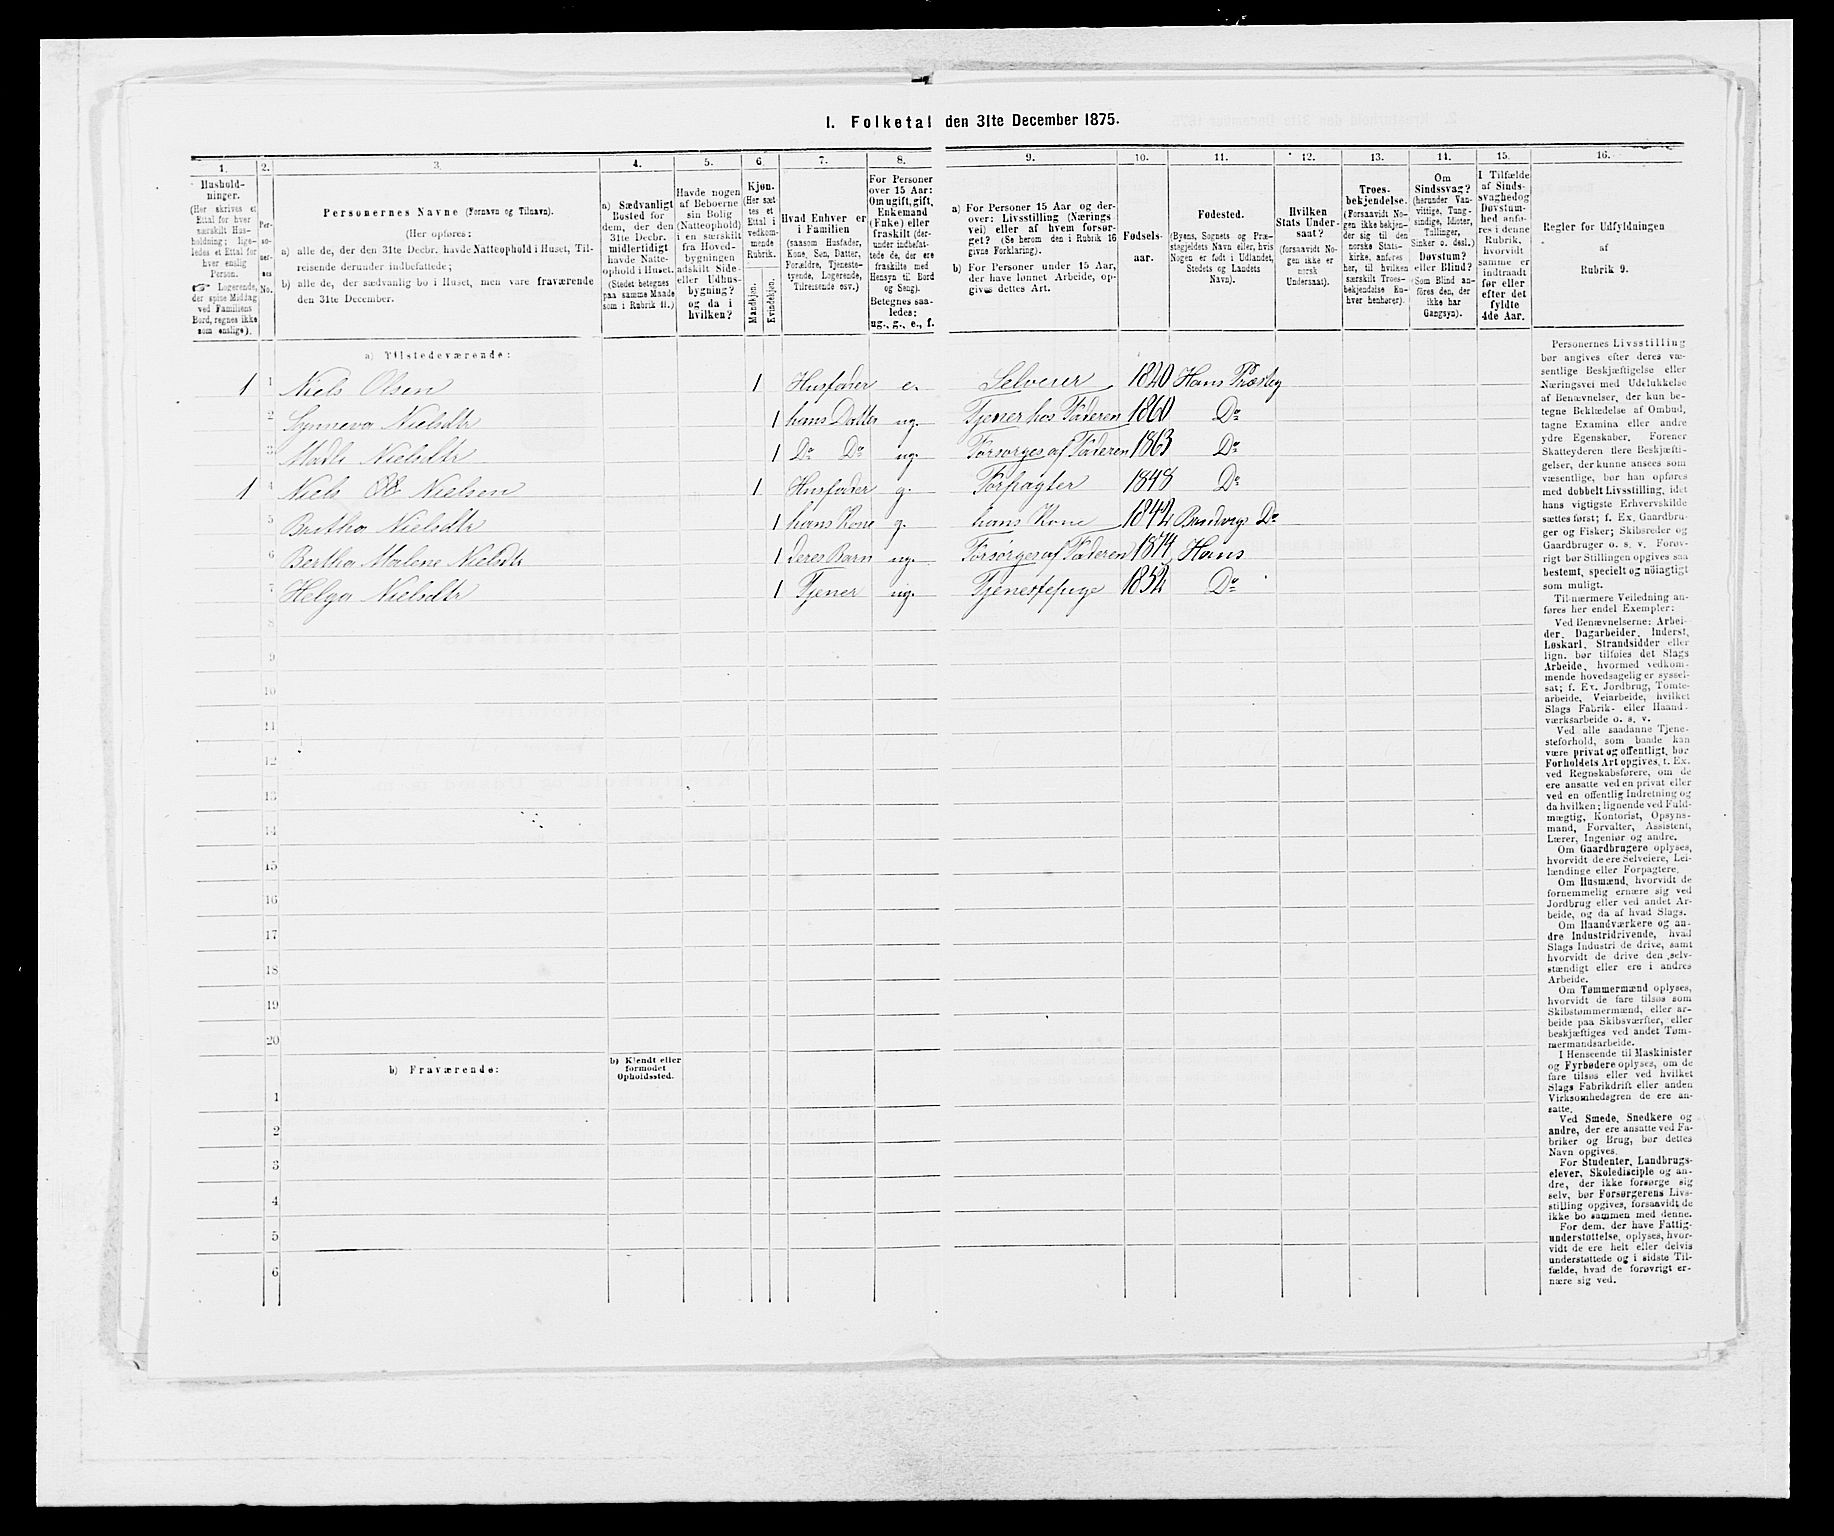 I. Folketal den 31te December 1875.
1. 2. 3. 4. 5. 6. 7. 8. 9. 10. 11. 12. 13. 14. 15. 16.
Husholdninger.
(Her skrives et Ettal for hver særskilt Husholdning; ligeledes et Ettal for hver enslig Person.
☞ Logerende, der spise Middag ved Familiens Bord, regnes ikke som enslige).
Personernes No.
Personernes Navne (Fornavn og Tilnavn).
(Her opføres:
a) alle de, der den 31te Decbr. havde Natteophold i Huset, Tilreisende derunder indbefattede;
b) alle de, der sædvanlig bo i Huset, men vare fraværende den 31te December.
a) Sædvanligt Bosted for dem, der den 31te Decbr. midlertidigt havde Natteophold i Huset. (Stedet betegnes paa samme Maade som i Rubrik 11.)
Havde nogen af Beboerne sin Bolig (Natteophold) i en særskilt fra Hovedbygningen adskilt Side- eller Udhusbygning? og da i hvilken?
Kjøn. (Her sættes et Ettal i vedkommende Rubrik.
Mandkjøn. Kvindekjøn.
Hvad Enhver er i Familien (saasom Husfader, Kone, Søn, Datter, Forældre, Tjenestetyende, Logerende, Tilreisende osv.)
For Personer over 15 Aar: Om ugift, gift, Enkemand (Enke) eller fraskilt (derunder indbefattede de, der ere fraskilte med Hensyn til Bord og Seng). Betegnes saaledes: ug., g., e., f.
a) For Personer 15 Aar og derover: Livsstilling (Næringsvei) eller af hvem forsørget? (Se herom den i Rubrik 16 givne Forklaring).
b) For Personer under 15 Aar, der have lønnet Arbeide, opgives dettes Art.
Fødselsaar.
Fødested. (Byens, Sognets og Præstegjeldets Navn eller, hvis Nogen er født i Udlandet, Stedets og Landets Navn).
Hvilken Stats Undersaat? (forsaavidt Nogen ikke er norsk Undersaat).
Troesbekjendelse. (Forsaavidt Nogen ikke bekjender sig til den norske Statskirke, anføres her, til hvilken særskilt Troesbekjendelse Enhver henhører).
Om Sindssvag? (herunder Vanvittige, Tungsindige, Idioter, Tullinger, Sinker o. desl.) Døvstum? eller Blind? (Som Blind anføres den, der ikke har Gangsyn).
I Tilfælde af Sindssvaghed og Døvstumhed anføres i denne Rubrik, hvorvidt samme er indtraadt før eller efter det fyldte 4de Aar.
Regler for Udfyldningen af Rubrik 9.
a) Tilstedeværende:
1 1 Niels Olsen 1 Husfader e. Selveier 1820 Hans Præstg
2 Synneva Nielsdtr 1 hans Datter ug. Tjener hos Faderen 1860 Do
3 Madle Nielsdtr 1 Do Do ug. Forsørges af Faderen 1863 Do
1 4 Niels Nielsen 1 Husfader g. Forpagter 1848 Do
5 Britha Nielsdtr 1 hans Kone g. hans Kone 1842 Do
6 Bertha Malene Nielsdtr 1 deres Barn ug. Forsørges af Faderen 1874 Hans
7 Helga Nielsdtr 1 Tjener ug. Tjenestepige 1852 Do
8
9
10
11
12
13
14
15
16
17
18
19
20
b) Fraværende: b) Kjendt eller formodet Opholdssted.
1
2
3
4
5
6
Personernes Livsstilling
bør angives efter deres væ-
sentlige Beskjæftigelse eller
Næringsvei med Udelukkelse
af Benævnelser, der kun be-
tegne Beklædelse af Ombud,
tagne Examina eller andre
ydre Egenskaber. Forener
Skatteyderen flere Beskjæfti-
gelser, der kunne ansees som
væsentlige, bør han opføres
med dobbelt Livsstilling, idet
hans vigtigste Erhvervskilde
sættes først; f. Ex. Gaardbru-
ger og Fisker; Skibsreder og
Gaardbruger o. s. v. Forøv-
rigt bør Stillingen opgives saa
bestemt, specielt og nøiagtigt
som muligt.
Til nærmere Veiledning an-
føres her endel Exempler:
Ved Benævnelserne: Arbei-
der, Dagarbeider, Inderst,
Løskarl, Strandsidder eller
lign. bør tilføies det Slags
Arbeide, hvormed vedkom-
mende hovedsagelig er syssel-
sat; f. Ex. Jordbrug, Tømte-
arbeide, Veiarbeide, hvilket
Slags Fabrik- eller Haand-
værksarbeide o. s. v.
Ved alle saadanne Tjene-
steforhold, som baade kan
være privat og offentligt, bør
Forholdets Art opgives, f. Ex.
ved Regnskabsførere, om de
ere ansatte ved en privat eller
ved en offentlig Indretning og
da hvilken; lignende ved Fuld-
mægtig, Kontorist, Opsyns-
mand, Forvalter, Assistent,
Lærer, Ingeniør og andre.
Om Gaardbrugere oplyses,
hvorvidt de ere Selveiere, Lei-
lændinge eller Forpagtere.
Om Husmænd, hvorvidt de
fornemmelig ernære sig ved
Jordbrug eller ved andet Ar-
beide, og da af hvad Slags.
Om Haandværkere og an-
dre Industridrivende, hvad
Slags Industri de drive, samt
hvorvidt de drive den selv-
stændigt eller ere i andres
Arbeide.
Om Tømmermænd oplyses,
hvorvidt de fare tilsøs som
Skibstømmermænd, eller ar-
beide paa Skibsværfter, eller
beskjæftiges ved andet Tøm-
mermandsarbeide.
I Henseende til Maskinister
og Fyrbødere oplyses, om de
fare tilsøs eller ved hvilket
Slags Fabrikdrift eller anden
Virksomhedsgren de ere an-
satte.
Ved Smede, Snedkere og
andre, der ere ansatte ved Fa-
briker og Brug, bør dettes
Navn opgives.
For Studenter, Landbrugs-
elever, Skoledisciple og an-
dre, der ikke forsørge sig
selv, bør Forsørgerens Livs-
stilling opgives, forsaavidt de
ikke bo sammen med denne.
For dem, der have Fattig-
understøttelse, oplyses, hvor-
vidt de ere helt eller delvis
understøttede og i sidste Til-
fælde, hvad de forøvrigt er-
nære sig ved.